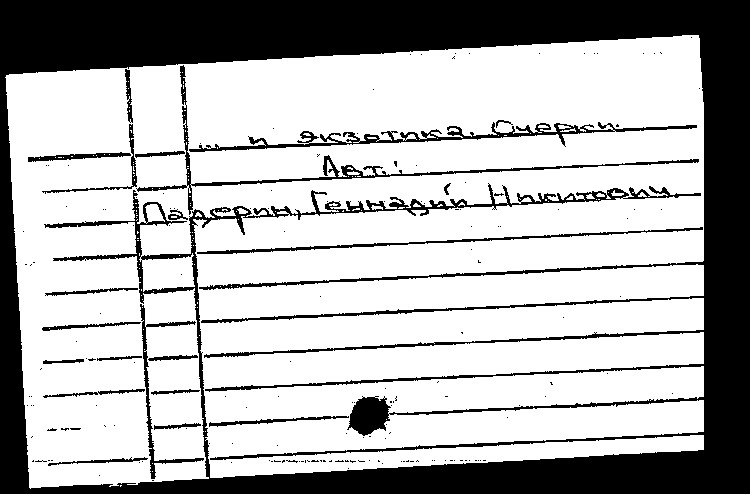 ... и экзотика. Очерки.
Авт.:
Падерин, Геннадий Никитович.